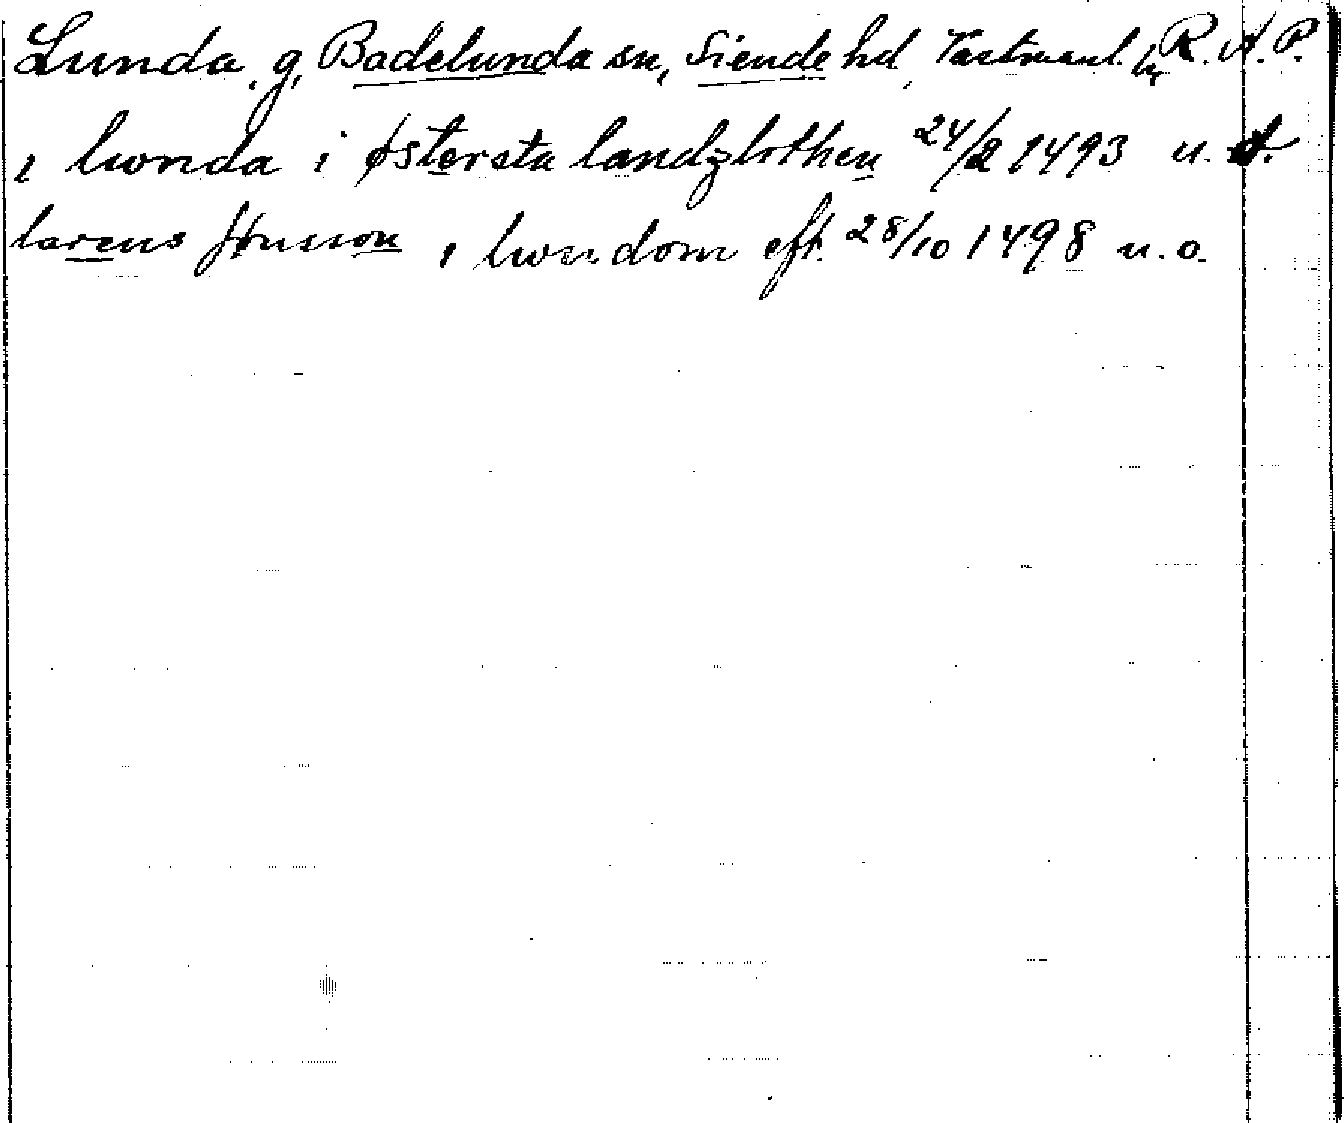 Lunda, g, Badelunda sn, Siende hd, Västmanl. R. A. P.
i lwnda i østersta landzlothen 24/2 1493 u. d.
larens Jønsson, i lwndom eft. 28/10 1498 u. o.